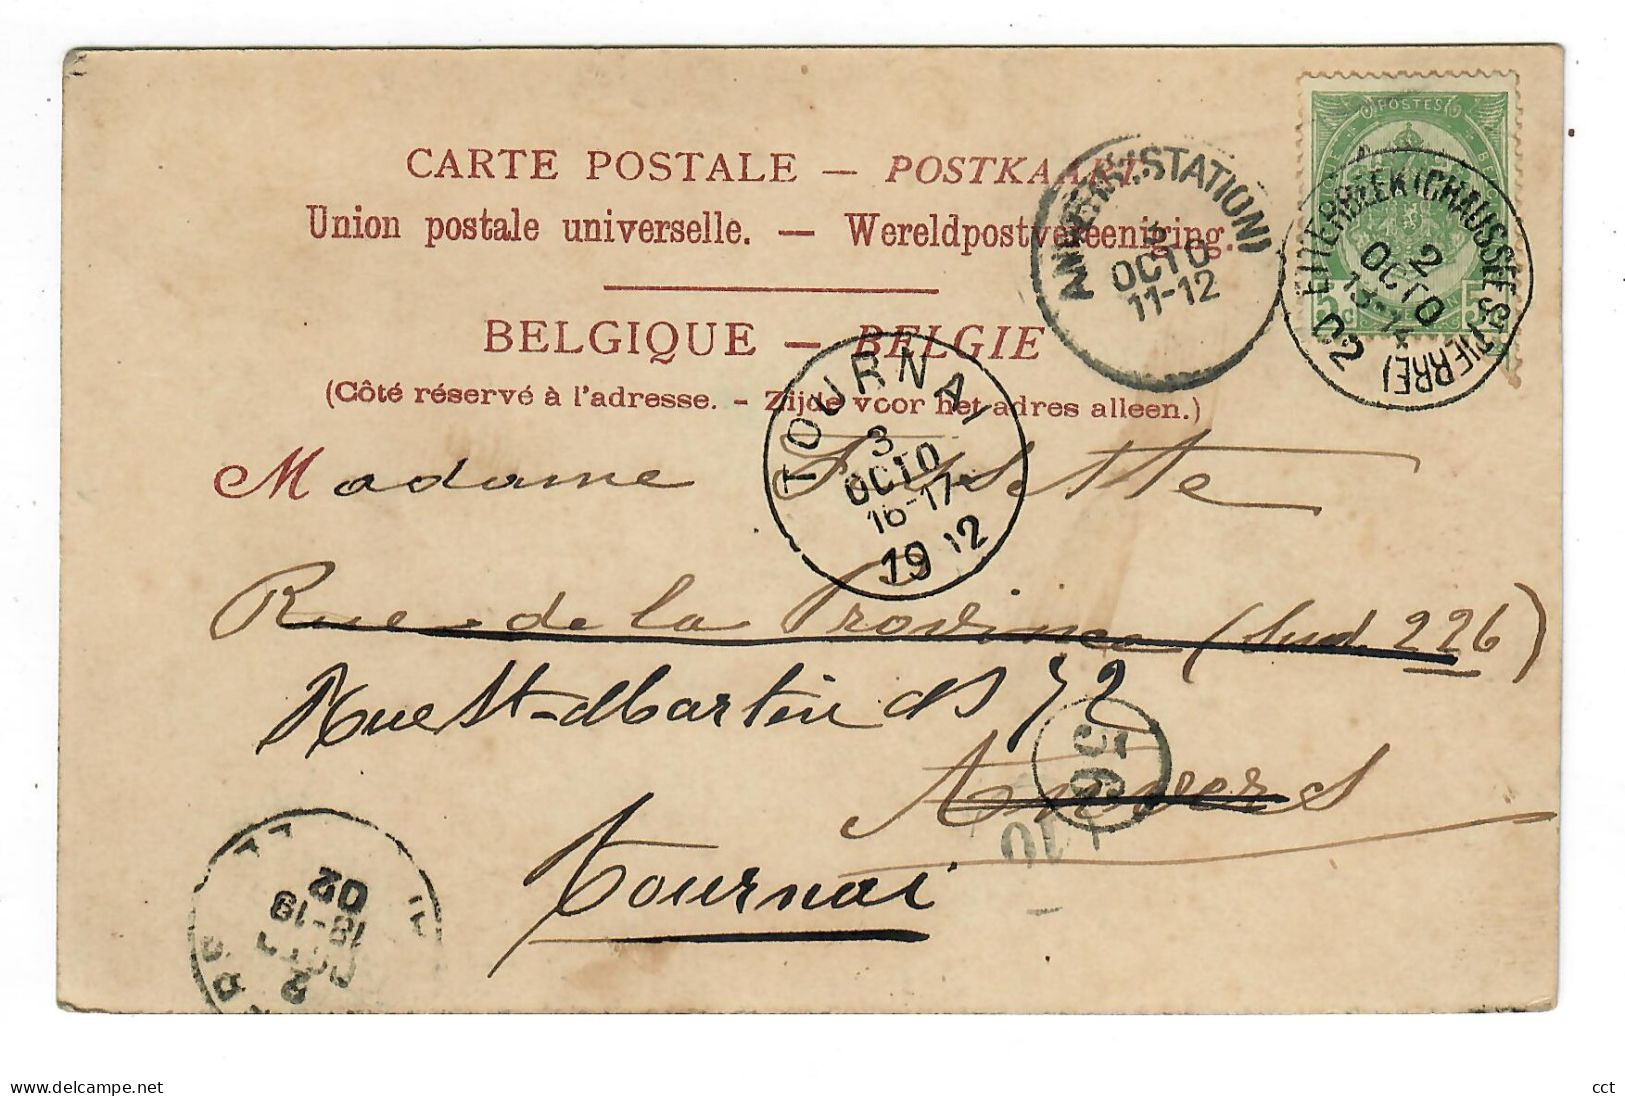 POSTES
CARTE POSTALE — POSTKAART.
Union postale universelle. — Wereldpostvereeniging.
BELGIQUE — BELGIE
(Côté réservé à l'adresse. - Zijde voor het adres alleen.)
ANVERS (STATION)
3
OCTO
11-12
ETTERBEEK (CHAUSSÉE ST PIERRE)
2
OCTO
13-14
02
5c 5c
TOURNAI
3
OCTO
16-17
19 12
Madame
Rue de la Province (Sud. 226)
Rue St-Martin 72
56
Anvers
10
Tournai
2
OCTO
18-19
02
delcampe.net
cct